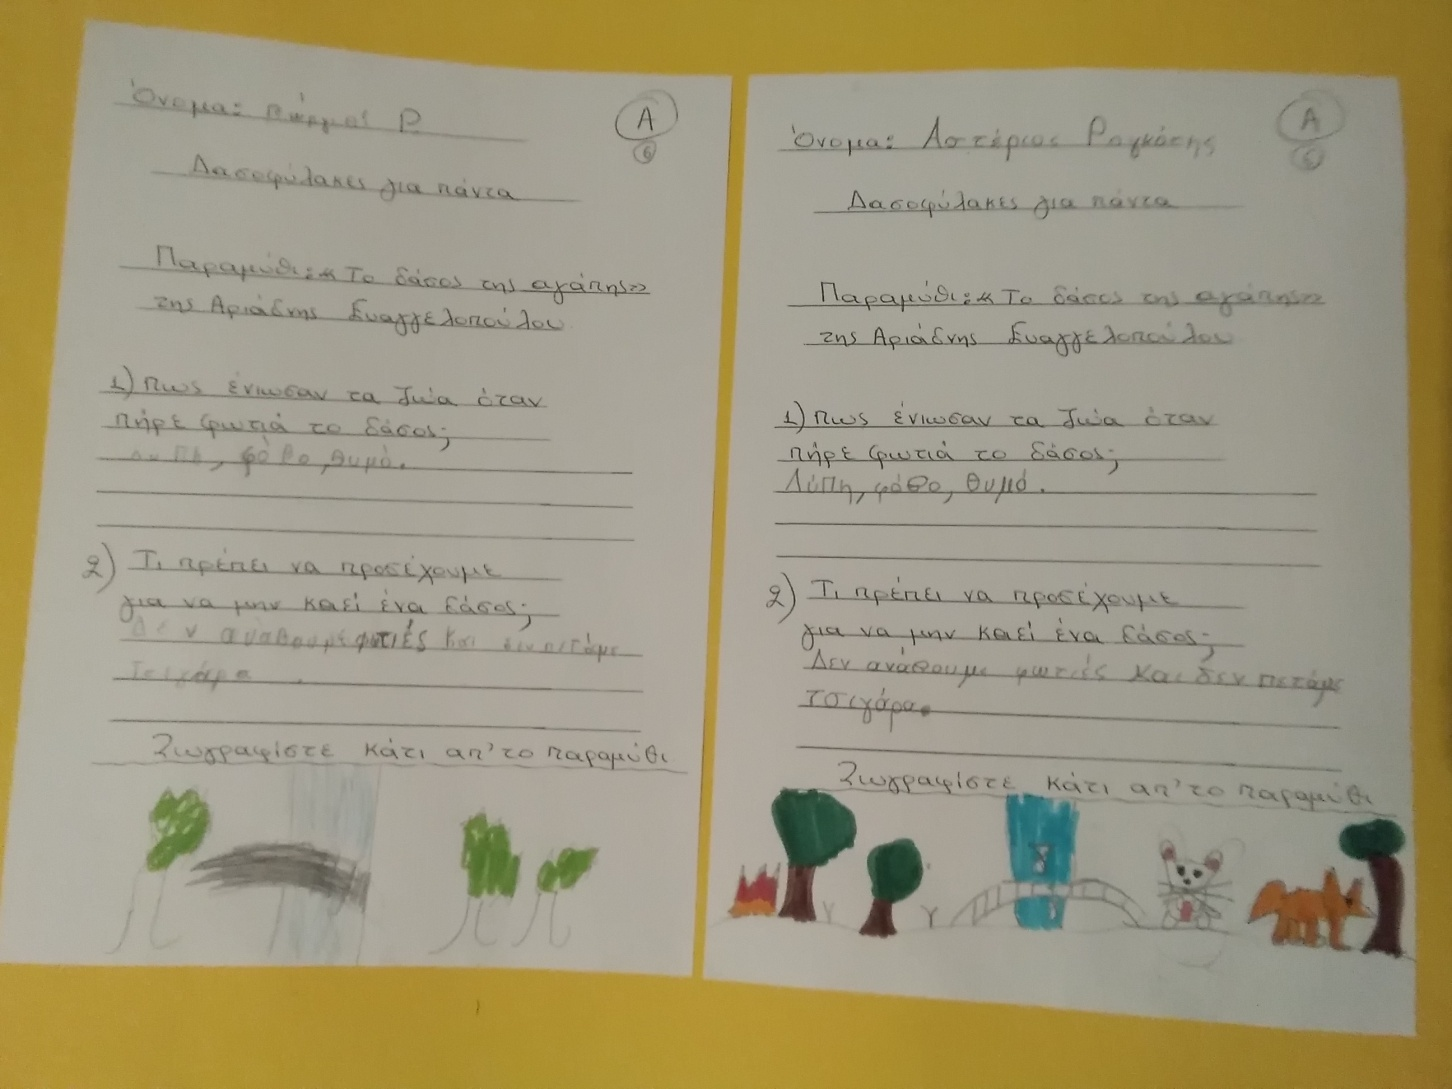 Όνομα: Γιώργος Ρ
Α
6
Δασοφύλακες για πάντα
Παραμύθι: «Το δάσος της αγάπης»
της Αριάδνης Ευαγγελοπούλου
1) Πως ένιωσαν τα ζώα όταν
πήρε φωτιά το δάσος;
φόβο, θυμό.
2) Τι πρέπει να προσέχουμε
για να μην καεί ένα δάσος;
Δεν ανάβουμε φωτιές και δεν πετάμε
τσιγάρα.
Ζωγραφίστε κάτι απ' το παραμύθι
Όνομα: Αστέριος Ρογκότης
Α
6
Δασοφύλακες για πάντα
Παραμύθι: «Το δάσος της αγάπης»
της Αριάδνης Ευαγγελοπούλου
1) Πως ένιωσαν τα ζώα όταν
πήρε φωτιά το δάσος;
Λύπη, φόβο, θυμό.
2) Τι πρέπει να προσέχουμε
για να μην καεί ένα δάσος;
Δεν ανάβουμε φωτιές και δεν πετάμε
τσιγάρα.
Ζωγραφίστε κάτι απ' το παραμύθι